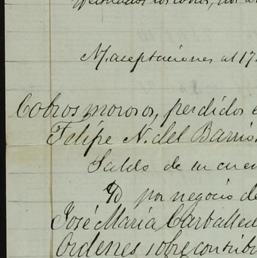 Naceptaciones al 17
Cobros morosos, perdidos
Felipe N. del Barrio
Saldo de su cuen
Yd por negocio de
José María Carballed
Ordenes sobre contribu